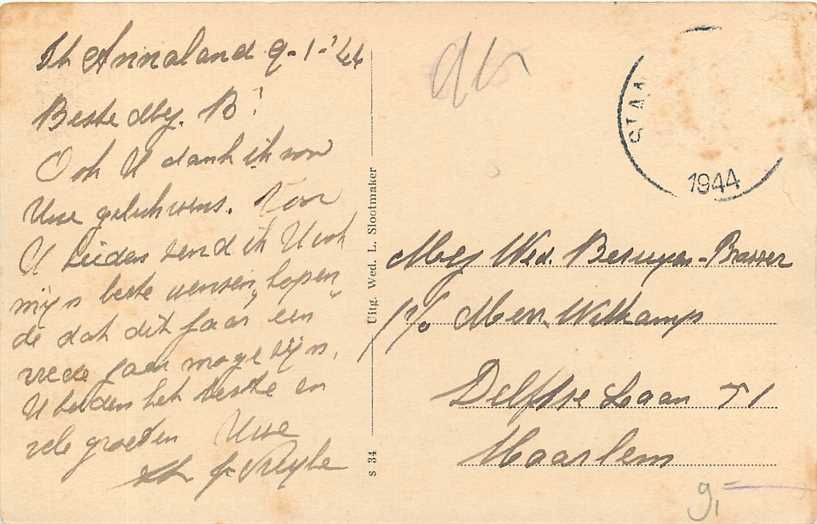 St Annaland 9-1-'44
Beste Mej. B!
Ook U dank ik voor
Uwe gelukwens. Voor
U beiden zend ik U ook
mijn beste wensen, hopen
de dat dit jaar een
vrede jaar moge zijn.
U beiden het beste en
vele groeten Uwe
Uitg. Wed. L. Slootmaker
S 34
STAA
1944
Mej Wed. - Brasser
p/o Mevr. Witkamp
Delftse Laan 71
Haarlem
9,-